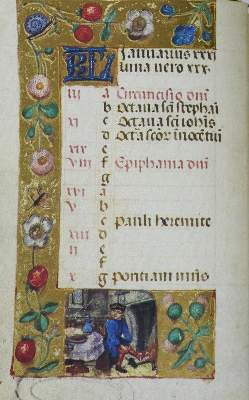 KL Januarius xxxi
luna vero xxx.
iii a Circuncisio dni
b Octaua sci stephani
xi c Octaua sci iohis
d Octa scor innocentu
xix e
viii f Epiphania dni
g
xvi a
v b
c Pauli heremite
xiii d
ii e
f
x g Pontiani mris